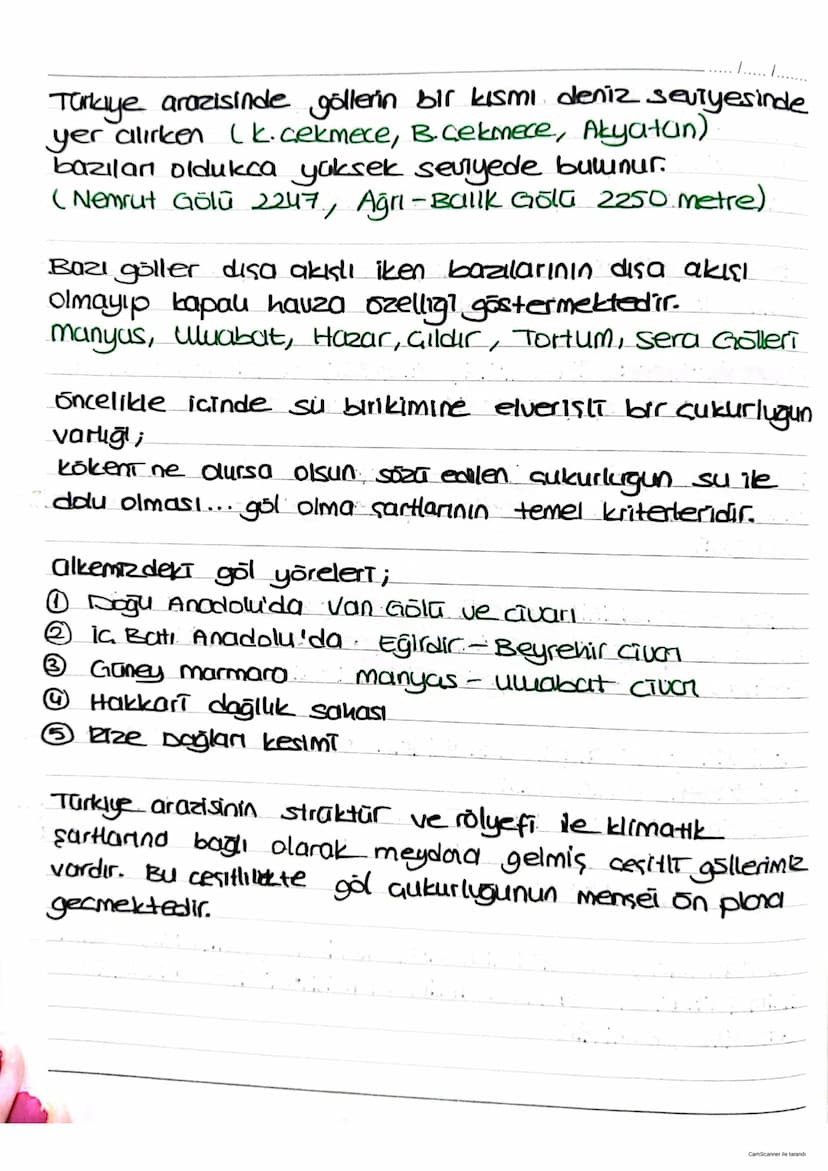 ..... /..... /.......
Türkiye arazisinde göllerin bir kısmı deniz seviyesinde
yer alırken (K.Çekmece, B.Çekmece, Akyatan)
bazıları oldukca yüksek seviyede bulunur.
(Nemrut Gölü 2247, Ağrı-Balık Gölü 2250 metre)
Bazı göller dışa akışlı iken bazılarının dışa akışı
olmayıp kapalı havza özelliği göstermektedir.
Manyas, Uluabat, Hazar, Çıldır, Tortum, Sera Gölleri
Öncelikle içinde su birikimine elverişli bir çukurluğun
varlığı;
Kökeni ne olursa olsun sözü edilen çukurluğun su ile
dolu olması... göl olma şartlarının temel kriterleridir.
Ülkemizdeki göl yöreleri;
① Doğu Anadolu'da Van Gölü ve civarı
② İç Batı Anadolu'da Eğirdir - Beyşehir civarı
③ Güney Marmara Manyas - Uluabat civarı
④ Hakkari dağlık sahası
⑤ Rize Dağları kesimi
Türkiye arazisinin strüktür ve rölyefi ile klimatik
şartlarına bağlı olarak meydana gelmiş çeşitli göllerimiz
vardır. Bu çeşitlilikte göl çukurluğunun menşei ön plana
geçmektedir.
CamScanner ile tarandı